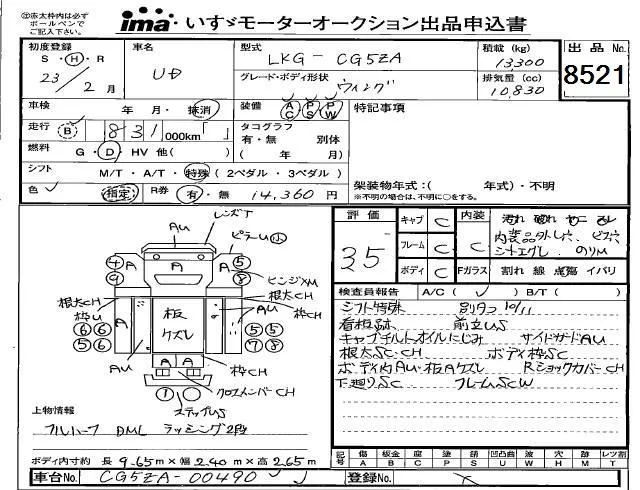 ㊟赤太枠内は必ず
ボールペンで
ご記入下さい。
ima いすゞモーターオークション出品申込書
初度登録 車名 型式 積載 (kg) 出品No.
S・H・R UD LKG-CG5ZA 13,300
23年 2月 グレード・ボディ形状 ウイング 排気量 (cc) 10,830 8521
車検 年 月・抹消 装備 AC PS PW 特記事項
走行 B 831,000km「 」 タコグラフ 有・無 別体
燃料 G・D・HV 他( ) ( 年 月)
シフト M/T・A/T・特殊 (2ペダル・3ペダル) 架装物年式:( 年式)・不明
色 指定 R券 有・無 14,360円 ※不明の場合は、不明に○をする。
評価 キャブ C 内装 C 汚れ 破れ
35 フレーム C 内装品外し穴、ビス穴
シートエグレ、のりM
ボディ C Fガラス 割れ 線 点傷 イバリ
検査員報告 A/C( ) B/T( )
シフト特殊 別タコ 10/11
看板跡 前立US
キャブチルトオイルにじみ サイドガードAU
根太SC.CH ボディ枠SC
ボディ内AU・板Aケズレ RショックカバーCH
下廻りSC フレームSCW
レンズT
AU
ピラーU小
A A A
4 9 5 8
ヒンジXM
根太CH 根太CH
枠U AU 枠CH
6 6 5 6 A 板ケズレ 5 5 7 8
AU A A 枠CH
クロスメンバーCH
1
ステップUS
上物情報
フルハーフ DML ラッシング2段
ボディ内寸約 長9.65m×幅2.40m×高2.65m
記号 傷A 板金B 座C 塗P 錆S 凹凸曲U 波W 穴H 割X M 痕T レツ割
車台No. CG5ZA-00490 登録No.